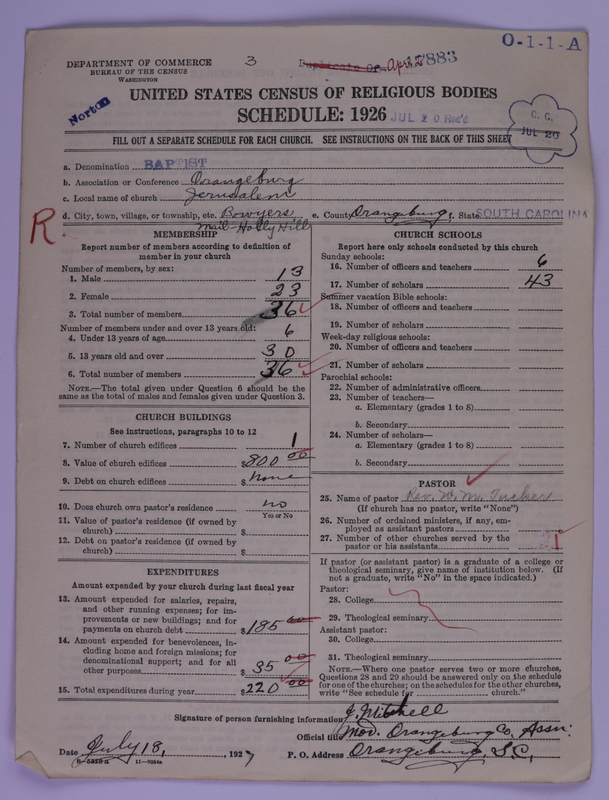 O-1-1-A
DEPARTMENT OF COMMERCE
BUREAU OF THE CENSUS
WASHINGTON
3
Duplicate Of April 2883
UNITED STATES CENSUS OF RELIGIOUS BODIES
SCHEDULE: 1926
Norton
JUL 20 Rec'd
C. C.
JUL 20
FILL OUT A SEPARATE SCHEDULE FOR EACH CHURCH. SEE INSTRUCTIONS ON THE BACK OF THIS SHEET
a. Denomination BAPTIST
b. Association or Conference Orangeburg
c. Local name of church Jerusalem
d. City, town, village, or township, etc. Bowyers e. County Orangeburg f. State SOUTH CAROLINA
Mail-Holly Hill
R.
MEMBERSHIP
Report number of members according to definition of
member in your church
Number of members, by sex:
1. Male 13
2. Female 23
3. Total number of members 36
Number of members under and over 13 years old:
4. Under 13 years of age 6
5. 13 years old and over 30
6. Total number of members 36
NOTE.—The total given under Question 6 should be the
same as the total of males and females given under Question 3.
CHURCH BUILDINGS
See instructions, paragraphs 10 to 12
7. Number of church edifices 1
8. Value of church edifices $800 00
9. Debt on church edifices $ None
10. Does church own pastor's residence no
Yes or No
11. Value of pastor's residence (if owned by
church) $
12. Debt on pastor's residence (if owned by
church) $
EXPENDITURES
Amount expended by your church during last fiscal year
13. Amount expended for salaries, repairs,
and other running expenses; for im-
provements or new buildings; and for
payments on church debt $185 00
14. Amount expended for benevolences, in-
cluding home and foreign missions; for
denominational support; and for all
other purposes 35 00
15. Total expenditures during year $220 00
CHURCH SCHOOLS
Report here only schools conducted by this church
Sunday schools:
16. Number of officers and teachers 6
17. Number of scholars 43
Summer vacation Bible schools:
18. Number of officers and teachers
19. Number of scholars
Week-day religious schools:
20. Number of officers and teachers
21. Number of scholars
Parochial schools:
22. Number of administrative officers
23. Number of teachers—
a. Elementary (grades 1 to 8)
b. Secondary
24. Number of scholars—
a. Elementary (grades 1 to 8)
b. Secondary
PASTOR
25. Name of pastor Rev. W. M. Tucker
(If church has no pastor, write "None")
26. Number of ordained ministers, if any, em-
ployed as assistant pastors
27. Number of other churches served by the
pastor or his assistants 1
If pastor (or assistant pastor) is a graduate of a college or
theological seminary, give name of institution below. (If
not a graduate, write "No" in the space indicated.)
Pastor:
28. College
29. Theological seminary
Assistant pastor:
30. College
31. Theological seminary
NOTE.—Where one pastor serves two or more churches,
Questions 28 and 29 should be answered only on the schedule
for one of the churches; on the schedules for the other churches,
write "See schedule for church."
Signature of person furnishing information J. Mitchell
Official title Mod. Orangeburg Co. Assn.
Date July 18, 1927 P. O. Address Orangeburg, S.C.
11-9954a